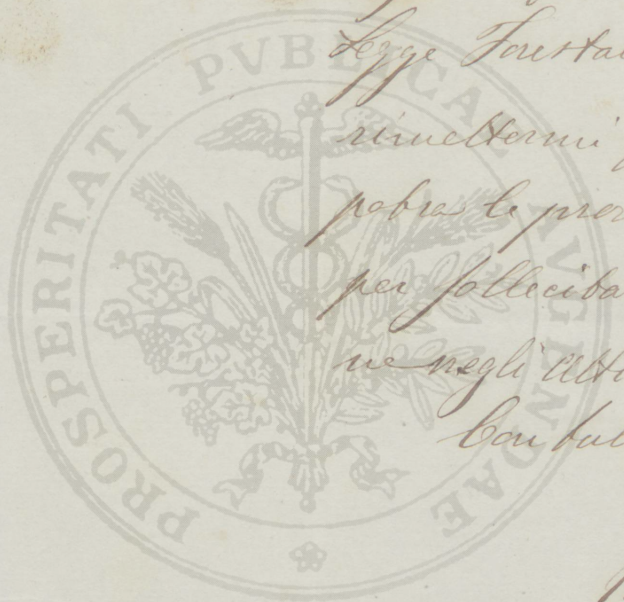 PROSPERITATI PVBLICAE AVGENDAE
Legge Foresta
rimettermi
potrà le prov
per sollecita
ne negli atti
Con tul